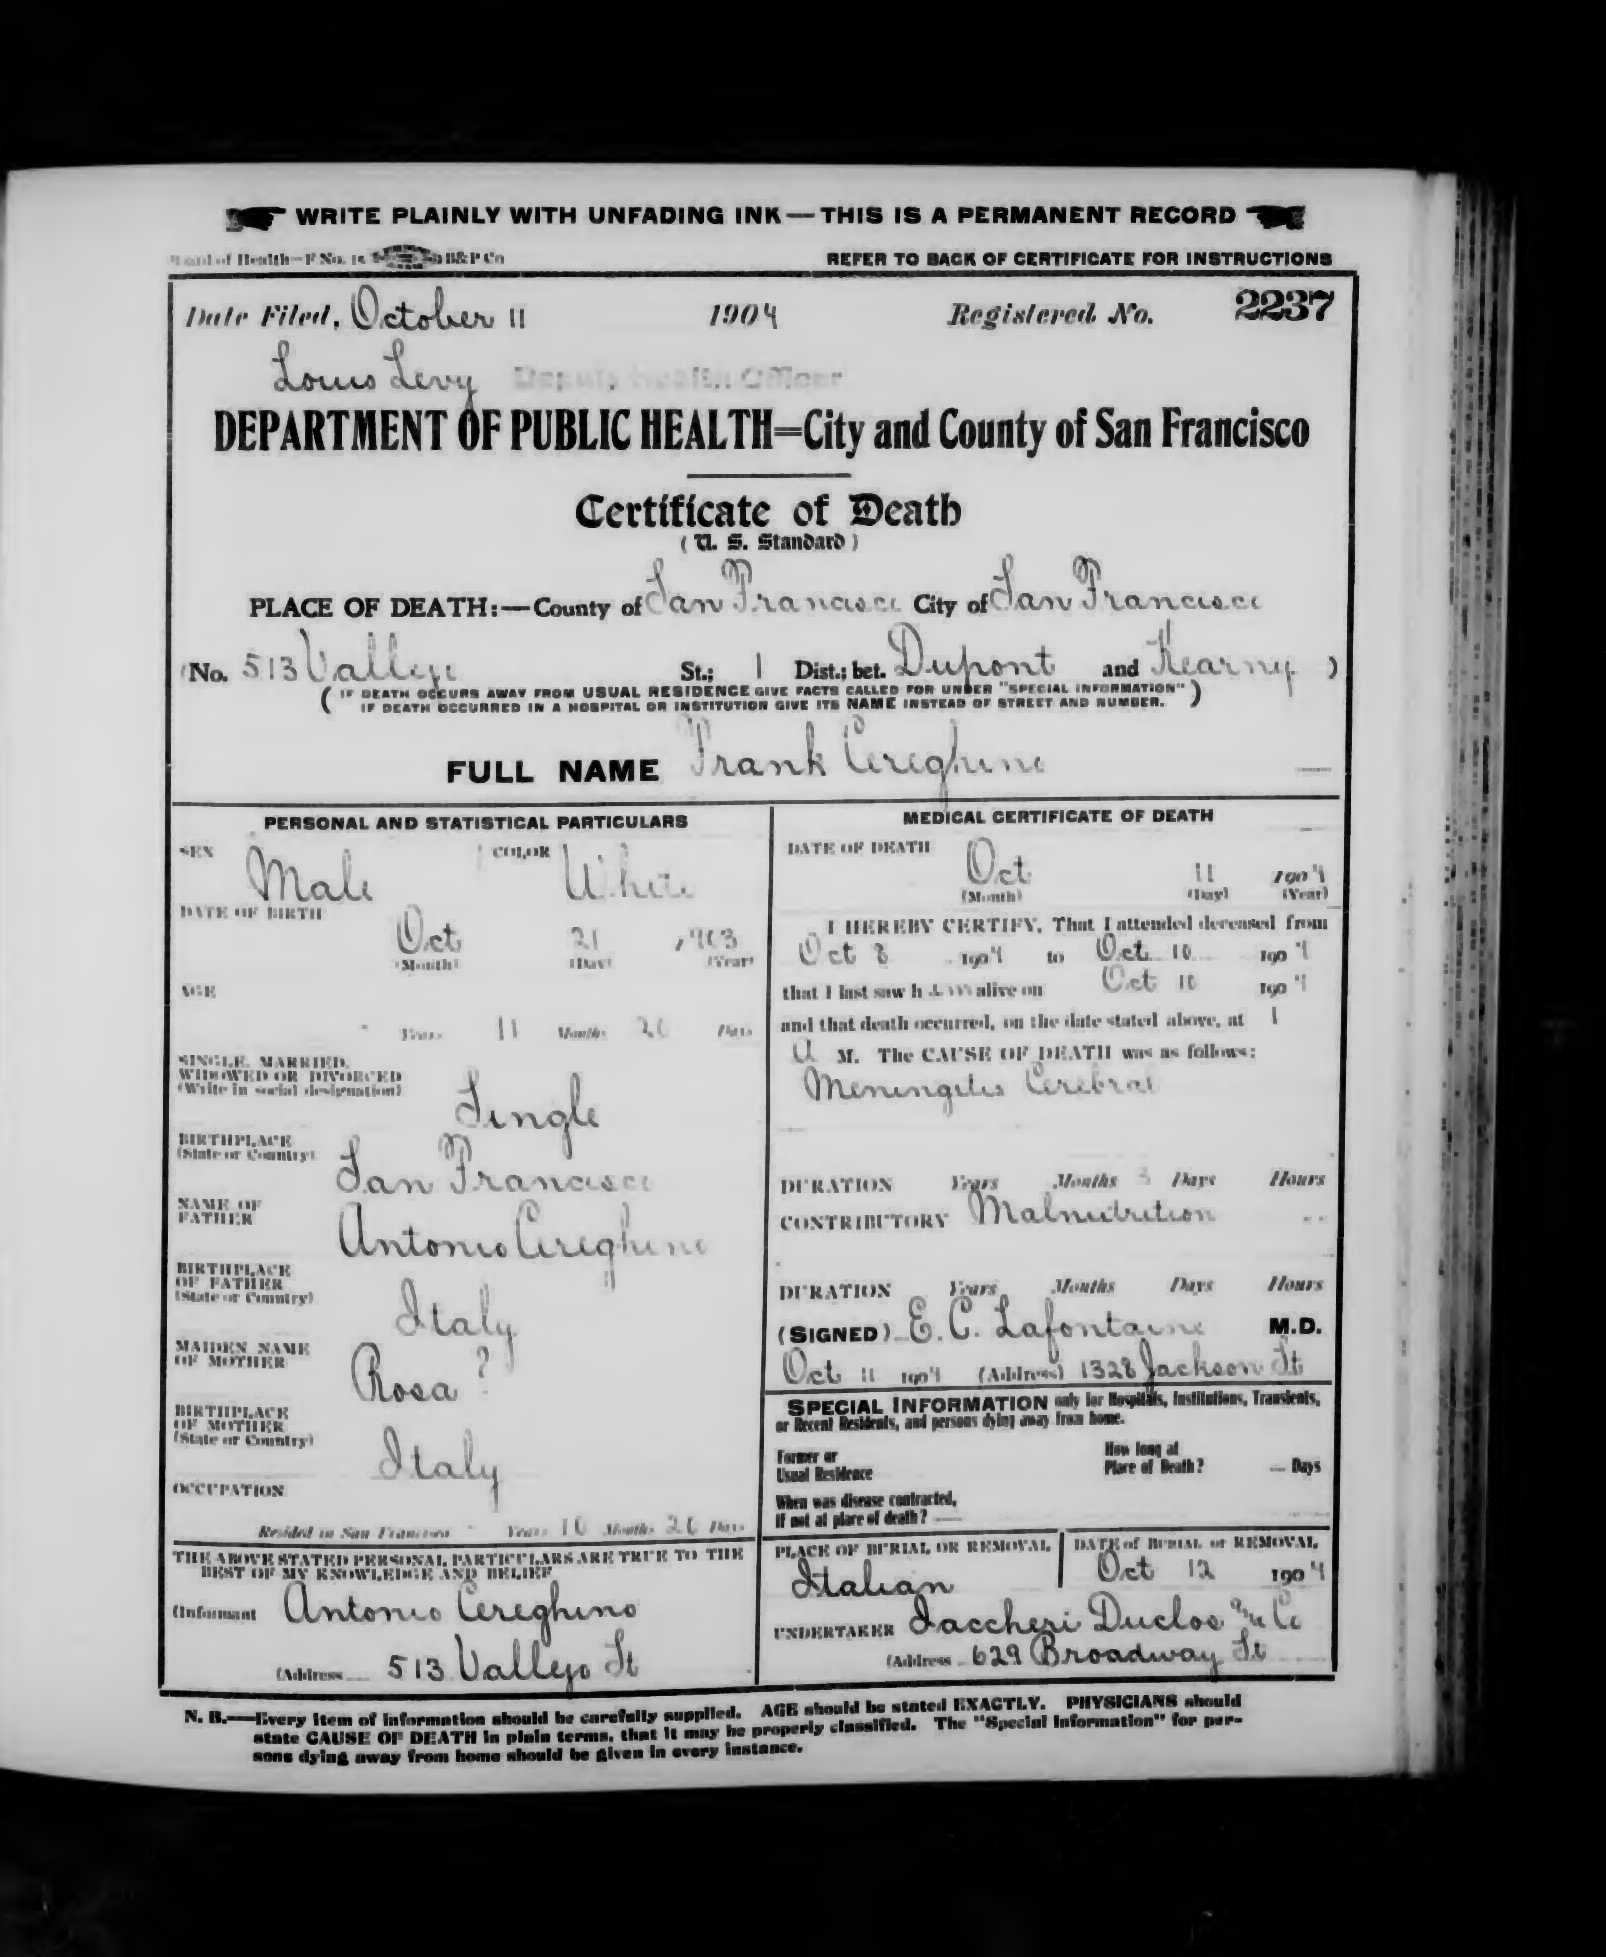 WRITE PLAINLY WITH UNFADING INK — THIS IS A PERMANENT RECORD
Board of Health—F No. 15 B&P Co REFER TO BACK OF CERTIFICATE FOR INSTRUCTIONS
Date Filed, October 11 1904 Registered No. 2237
Louis Levy Deputy Health Officer
DEPARTMENT OF PUBLIC HEALTH=City and County of San Francisco
Certificate of Death
( U. S. Standard )
PLACE OF DEATH:—County of San Francisco City of San Francisco
(No. 513 Vallejo St.; 1 Dist.; bet. Dupont and Kearny )
( IF DEATH OCCURS AWAY FROM USUAL RESIDENCE GIVE FACTS CALLED FOR UNDER "SPECIAL INFORMATION" )
IF DEATH OCCURRED IN A HOSPITAL OR INSTITUTION GIVE ITS NAME INSTEAD OF STREET AND NUMBER.
FULL NAME Frank Cereghino
PERSONAL AND STATISTICAL PARTICULARS
SEX Male COLOR White
DATE OF BIRTH
Oct 21 1903
(Month) (Day) (Year)
AGE
- Years 11 Months 20 Days
SINGLE, MARRIED,
WIDOWED OR DIVORCED
(Write in social designation)
Single
BIRTHPLACE
(State or Country)
San Francisco
NAME OF
FATHER
Antonio Cereghino
BIRTHPLACE
OF FATHER
(State or Country)
Italy
MAIDEN NAME
OF MOTHER
Rosa ?
BIRTHPLACE
OF MOTHER
(State or Country)
Italy
OCCUPATION
Resided in San Francisco - Years 10 Months 20 Days
THE ABOVE STATED PERSONAL PARTICULARS ARE TRUE TO THE
BEST OF MY KNOWLEDGE AND BELIEF
(Informant Antonio Cereghino
(Address 513 Vallejo St
MEDICAL CERTIFICATE OF DEATH
DATE OF DEATH
Oct 11 1904
(Month) (Day) (Year)
I HEREBY CERTIFY, That I attended deceased from
Oct 8 1904 to Oct 10 1904
that I last saw h im alive on Oct 10 1904
and that death occurred, on the date stated above, at 1
A M. The CAUSE OF DEATH was as follows:
Meningitis Cerebral
DURATION Years Months 3 Days Hours
CONTRIBUTORY Malnutrition
DURATION Years Months Days Hours
(SIGNED) E. C. Lafontaine M.D.
Oct 11 1904 (Address) 1328 Jackson St
SPECIAL INFORMATION only for Hospitals, Institutions, Transients,
or Recent Residents, and persons dying away from home.
Former or
Usual Residence
How long at
Place of Death? — Days
When was disease contracted,
If not at place of death? —
PLACE OF BURIAL OR REMOVAL
Italian
DATE of BURIAL or REMOVAL
Oct 12 1904
UNDERTAKER Iaccheri Duclos and Co
(Address 629 Broadway St
N. B.—Every item of information should be carefully supplied. AGE should be stated EXACTLY. PHYSICIANS should
state CAUSE OF DEATH in plain terms, that it may be properly classified. The "Special Information" for per-
sons dying away from home should be given in every instance.